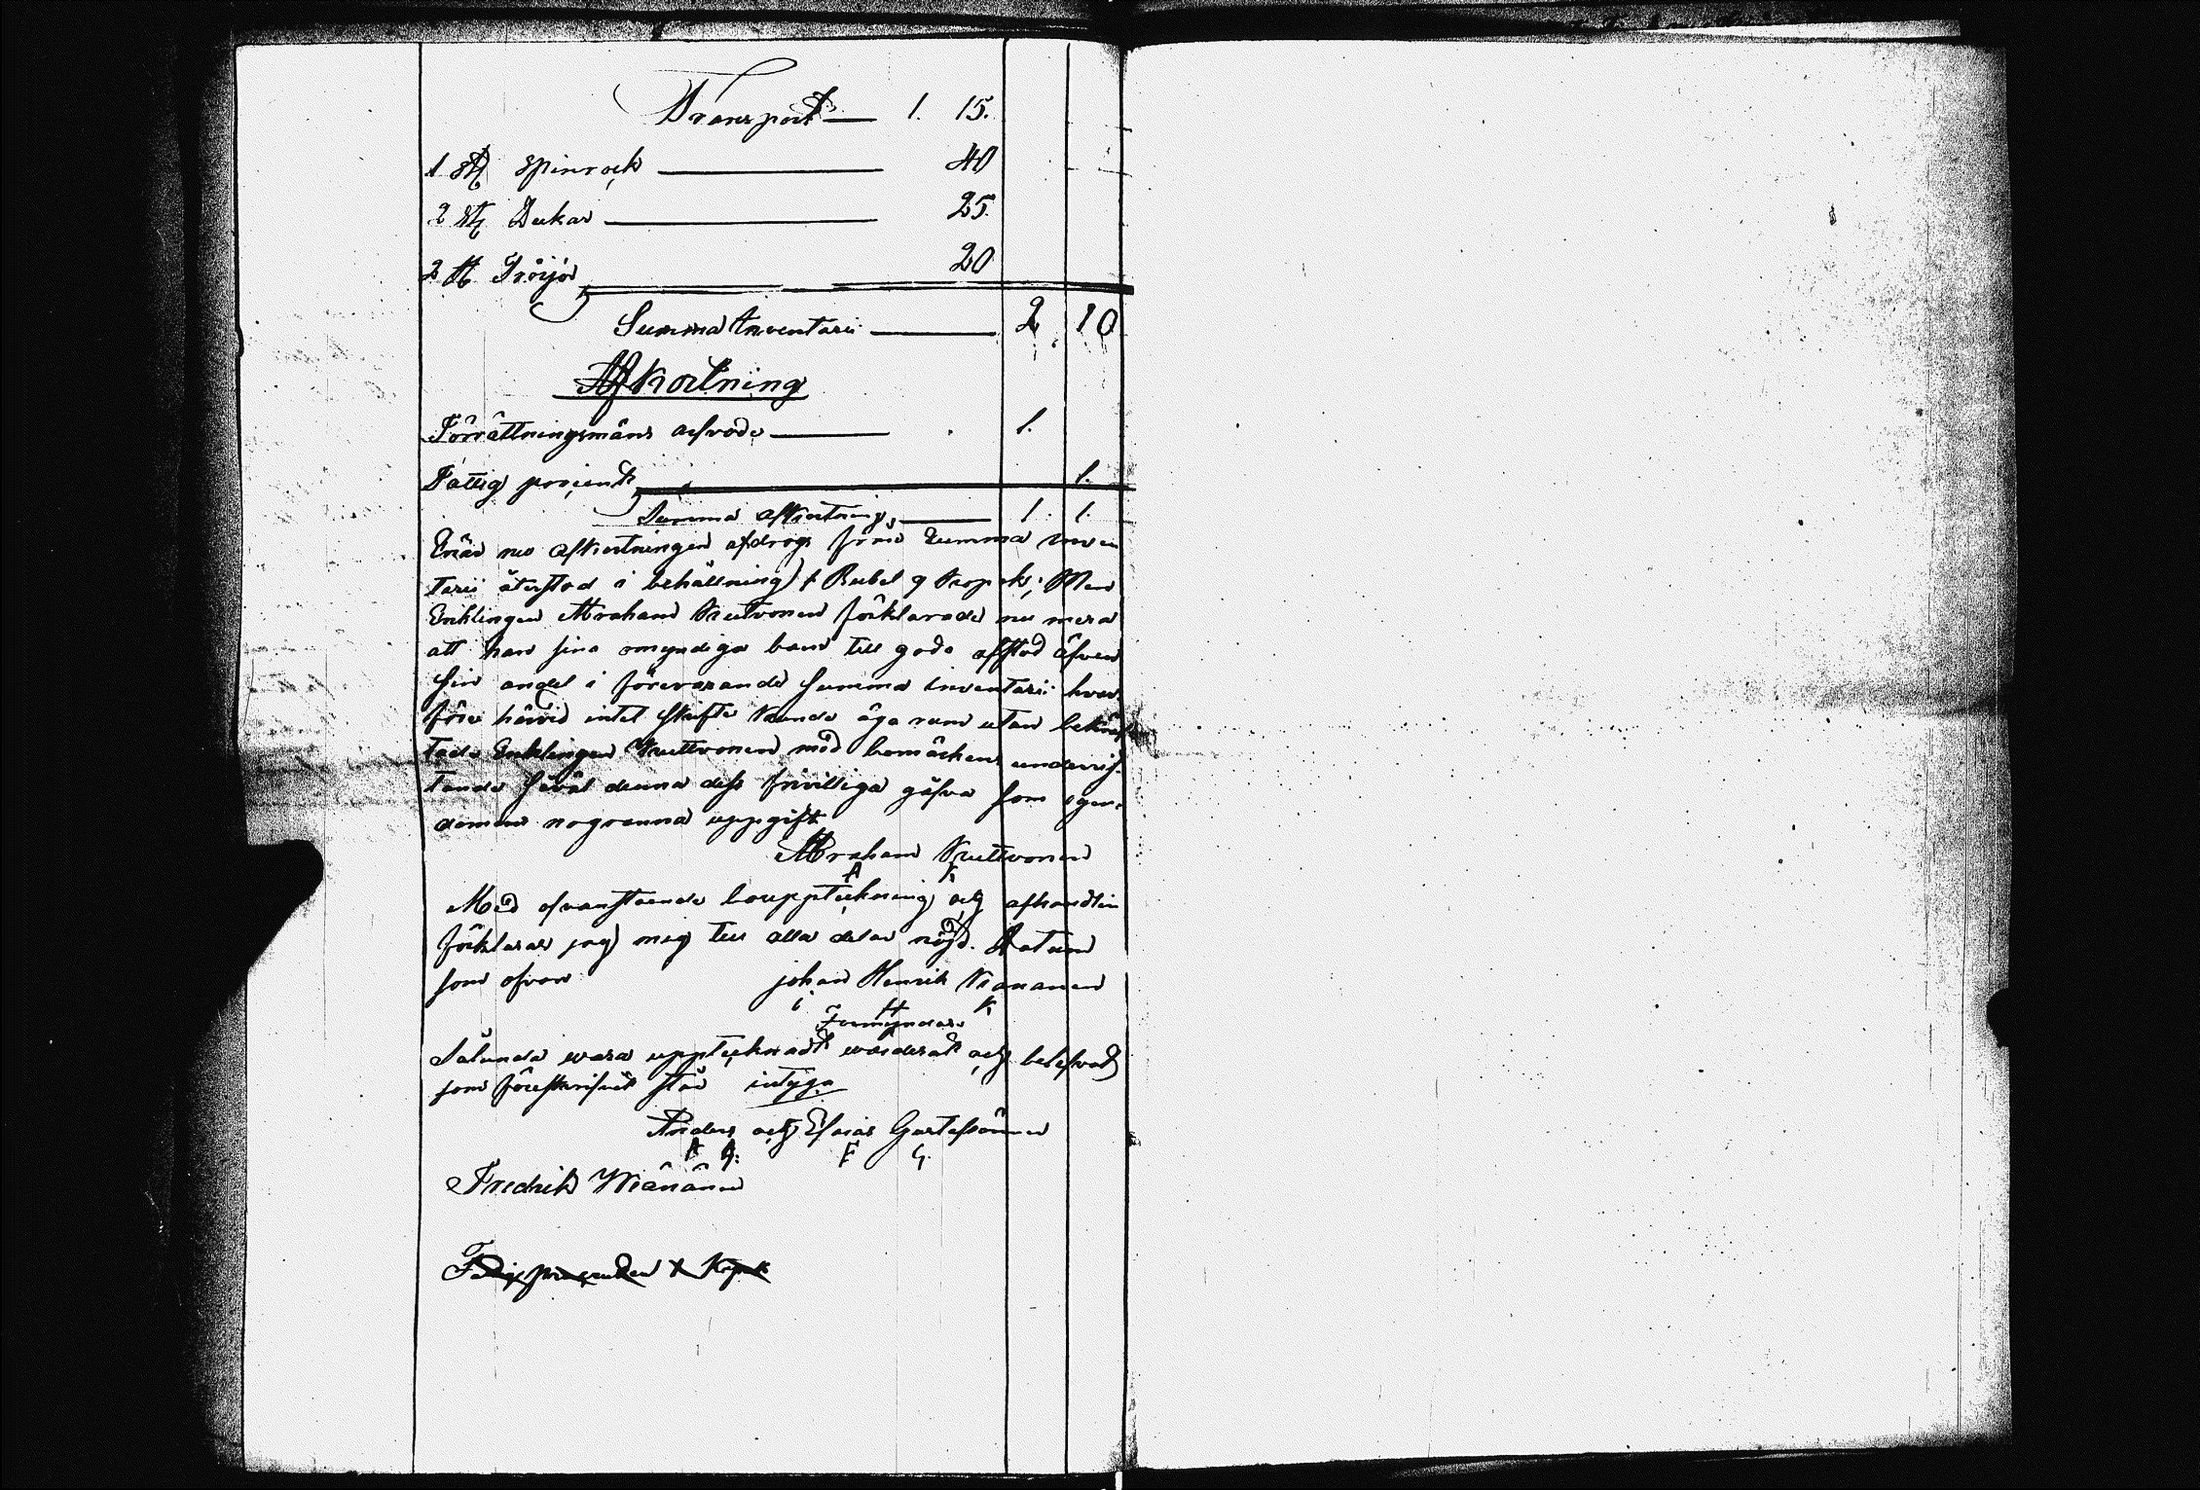 Transport 1. 15.
1 st spinrock 40
2 st Dukar 25.
2 st Tröijor 20
Summa Inventarii 2. 10
Afkortning
Förrättningsmäns arfvode 1.
Fattig procent 1.
Summa afkortning 1. 1.
Enär nu afkortningen afdrogs från Summa inven
tarii återstod i behållning 1 Rubel 9 Kopek; Men
Enklingen Abraham Kuttvonen förklarade nu mera
att han sina omyndiga barn till godo afstod äfven
sin andel i förevarande summa inventarii hvar
före härvid intet skifte kunde äga rum utan bekräf
tade Enklingen Kuttvonen med bomärkens underrit
tande såväl denna dess frivilliga gåfva som egen
domens nogranna uppgift
Abraham Kuttvonen
A K
Med ofvanstående bouppteckning och afhandlin
förklarar jag mig till alla delar nöjd. Datum
som ofvan johan Henrik Kananen
i H K
Förmyndare
Sålunda vara upptecknadt värderat och
som föreskrifvit står intyga
Anders och Esaias Gustafsönner
A G: E G.
Fredrik Väänänen